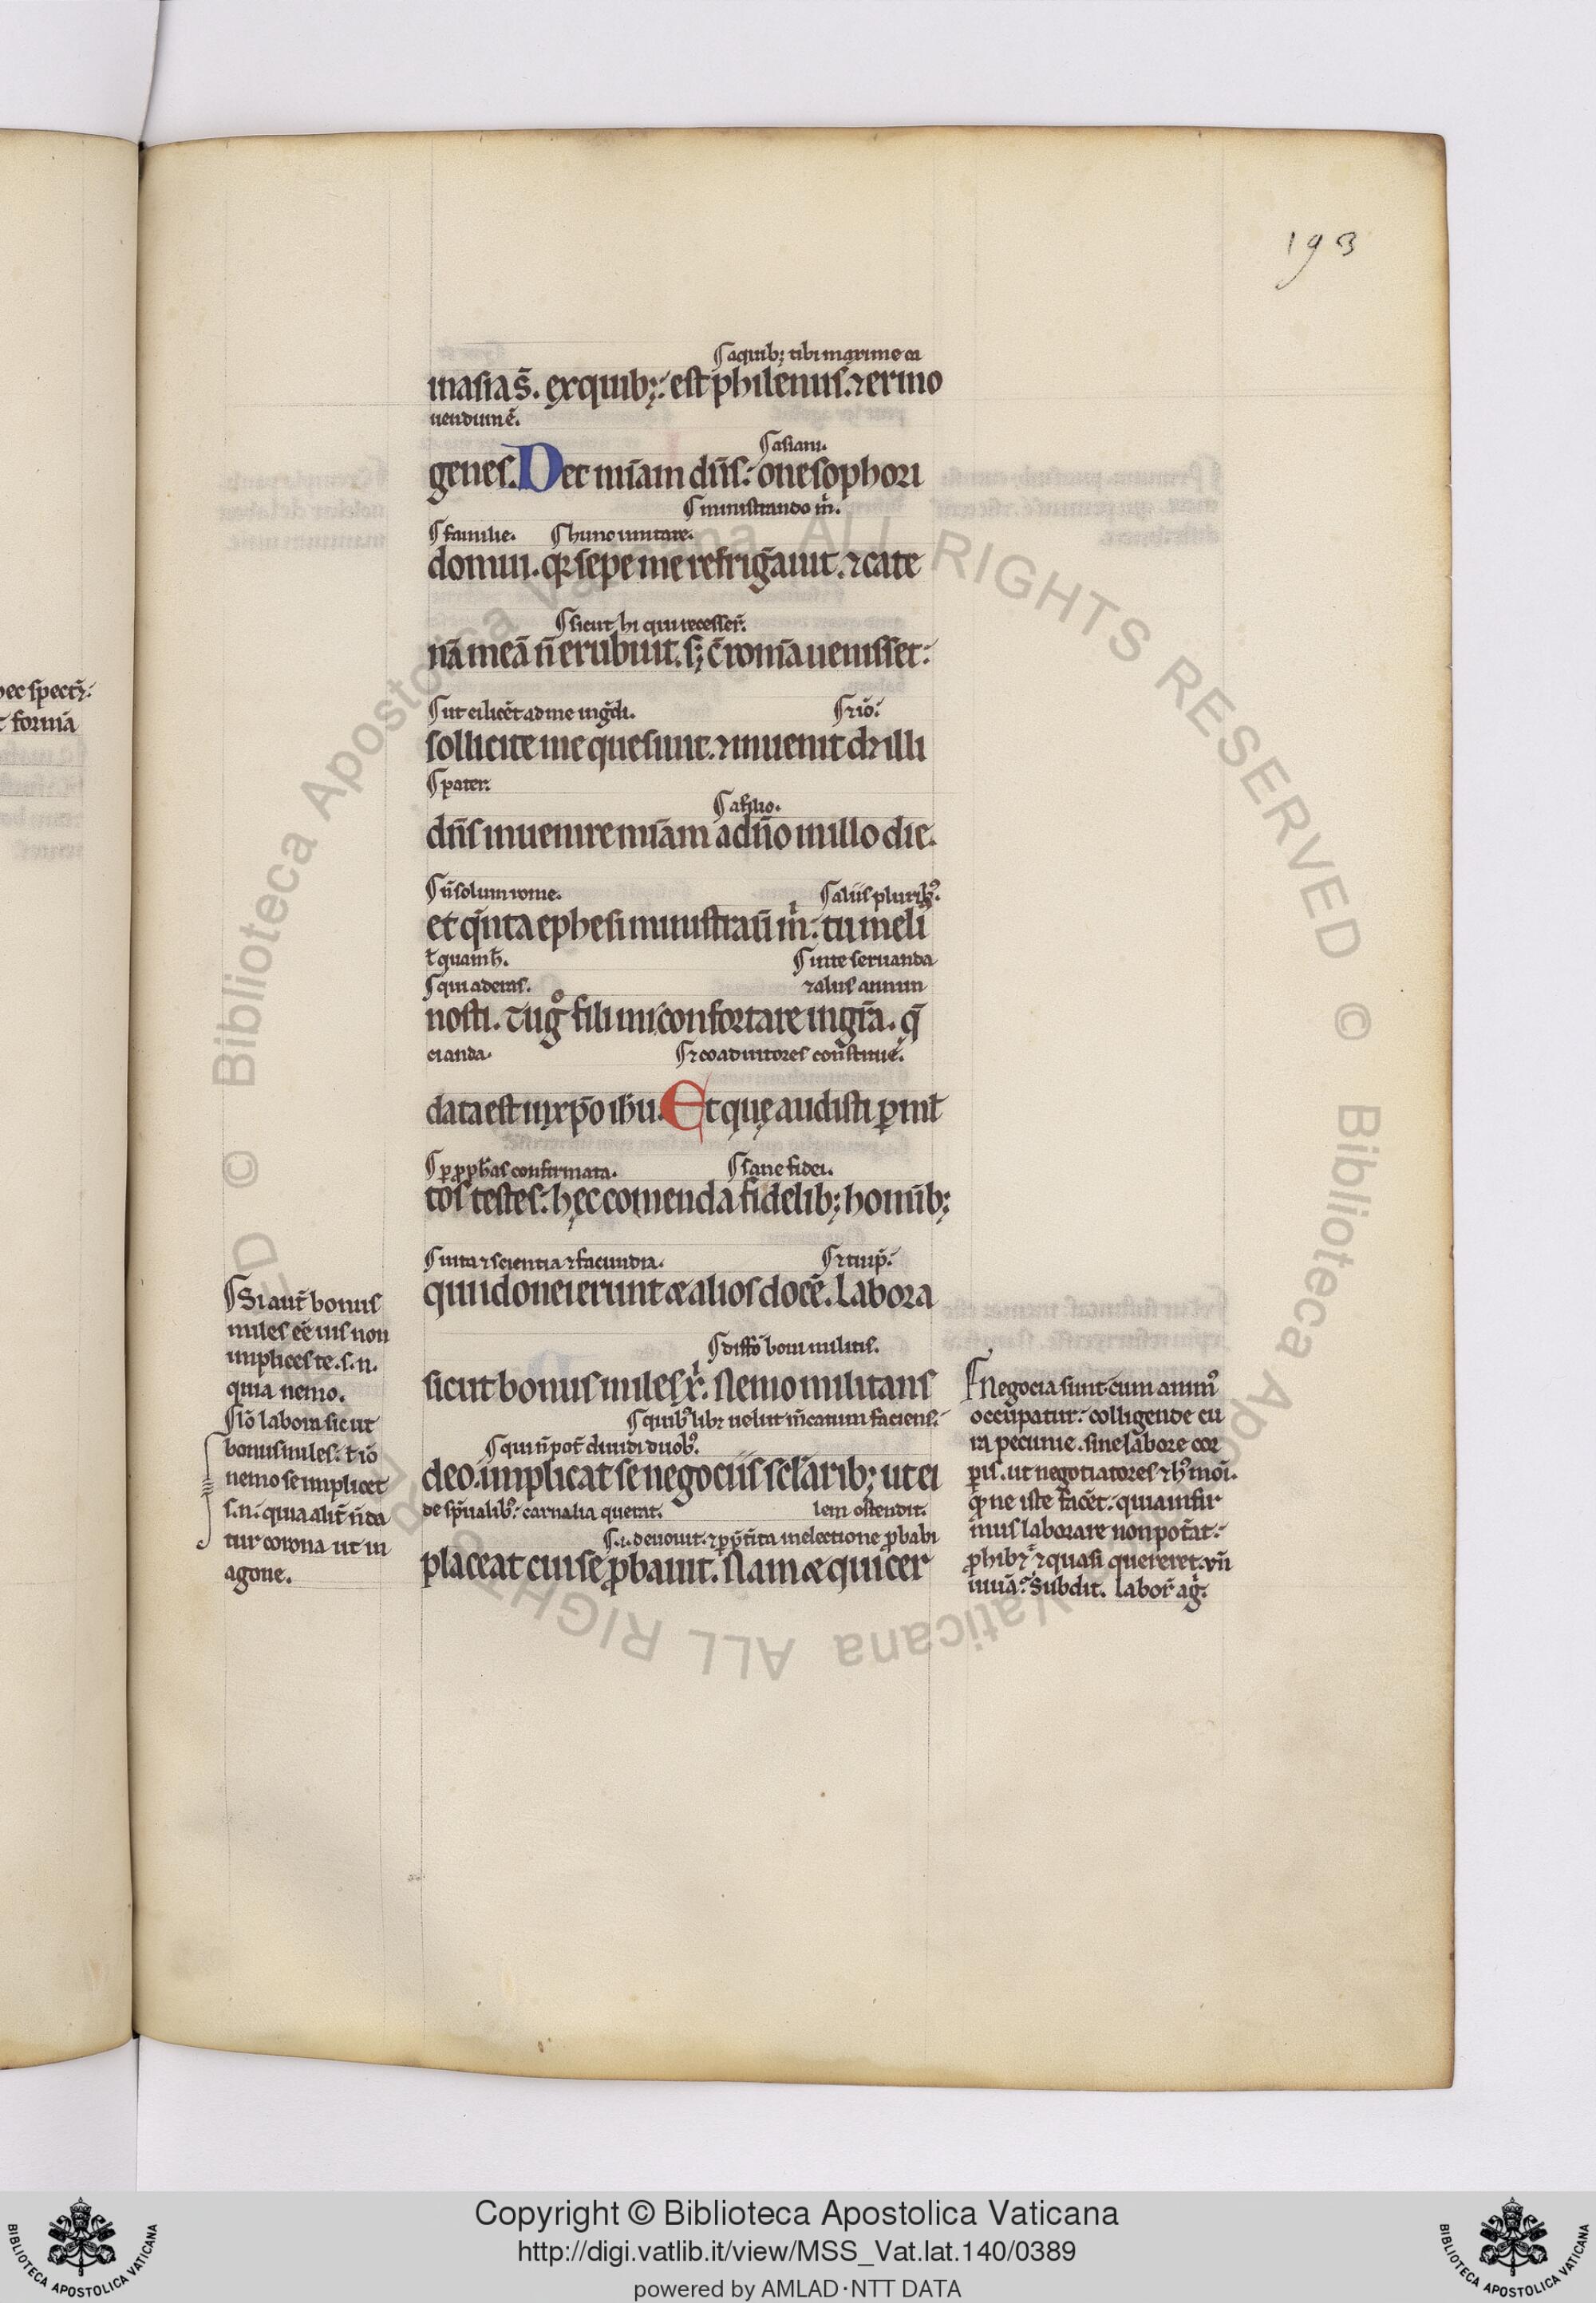 193
¶ aquib; tibi maxime ca
in asia s̄. ex quib;: est philenus. ⁊ ermo
uendum ē.
¶ asiani.
genes. Det mīam dn̄s: onesophori
¶ ministrando m̄.
¶ familie. ¶ hunc imitare.
domui. qꝛ sepe me refrigāuit. ⁊ cate
¶ sicut hi qui recesser̄.
nā meā n̄ erubuit. s; c̄ romā uenisset:
¶ ut ei licēt ad me ingdi. ¶ ⁊ iō.
sollicite me quesiuit. ⁊ inuenit det illi
¶ pater.
dn̄s inuenire mīam a dn̄o in illo die.
¶ a filio.
¶ n̄ solum rome. ¶ aliis plurib⁹.
et qn̄ta ephesi ministrau̅ m̄: tu meli⁹
ł quam h̄. ¶ in te seruanda
¶ qui aderas. ⁊ aliis annun
nosti. Tu gͦ fili mi confortare in gr̄a. q̄
cianda. ¶ ⁊ coadiutores constitue.
data est in xp̄o ih̄u. Et quę audisti ꝑ mł
¶ ꝑ ꝓph̄as confirmata. ¶ sane fidei.
tos testes: hęc comenda fidelib; homīb;
¶ uita ⁊ scientia ⁊ facundia. ¶ ⁊ tu ip̄.
qui idonei erunt ⁊ alios docē. Labora
¶ diffō boni militis.
sicut bonus miles x̄. Nemo militans
¶ quib⁹libꝫ uelut m̄catum faciens.
¶ qui n̄ pot̄ diuidi duob⁹.
deo. implicat se negociis sclārib; ut ei
de sp̄ualib⁹: carnalia querat. lem ostendit.
¶ .i. deuouit. ⁊ ꝑ in electione ꝓbabi
placeat cui se ꝓbauit. Nam ⁊ qui cer
¶ Si aut̄ bonus
miles eē uis non
implices te. s. n.
quia nemo.
¶ Iō labora sicut
bonus miles: ł iō
nemo se implicet
s. n. quia alit̄ n̄ da
tur corona ut in
agone.
¶ Negocia sunt cum anim⁹
occupatur: colligende cu
ra pecunie. sine labore cor
ꝑis. ut negotiatores ⁊ h⁹ moi.
ꝙ ne iste facēt: quia infir
mus laborare non potāt:
ꝓhibꝫ ⁊ quasi quereret. vn̄
uiuā? Subdit. labor̄ ag̅.
ec spectꝫ:
t formā
Copyright © Biblioteca Apostolica Vaticana
http://digi.vatlib.it/view/MSS_Vat.lat.140/0389
powered by AMLAD·NTT DATA
BIBLIOTECA APOSTOLICA VATICANA
BIBLIOTECA APOSTOLICA VATICANA
© Biblioteca Apostolica Vaticana ALL RIGHTS RESERVED © Biblioteca Apostolica Vaticana ALL RIGHTS RESERVED